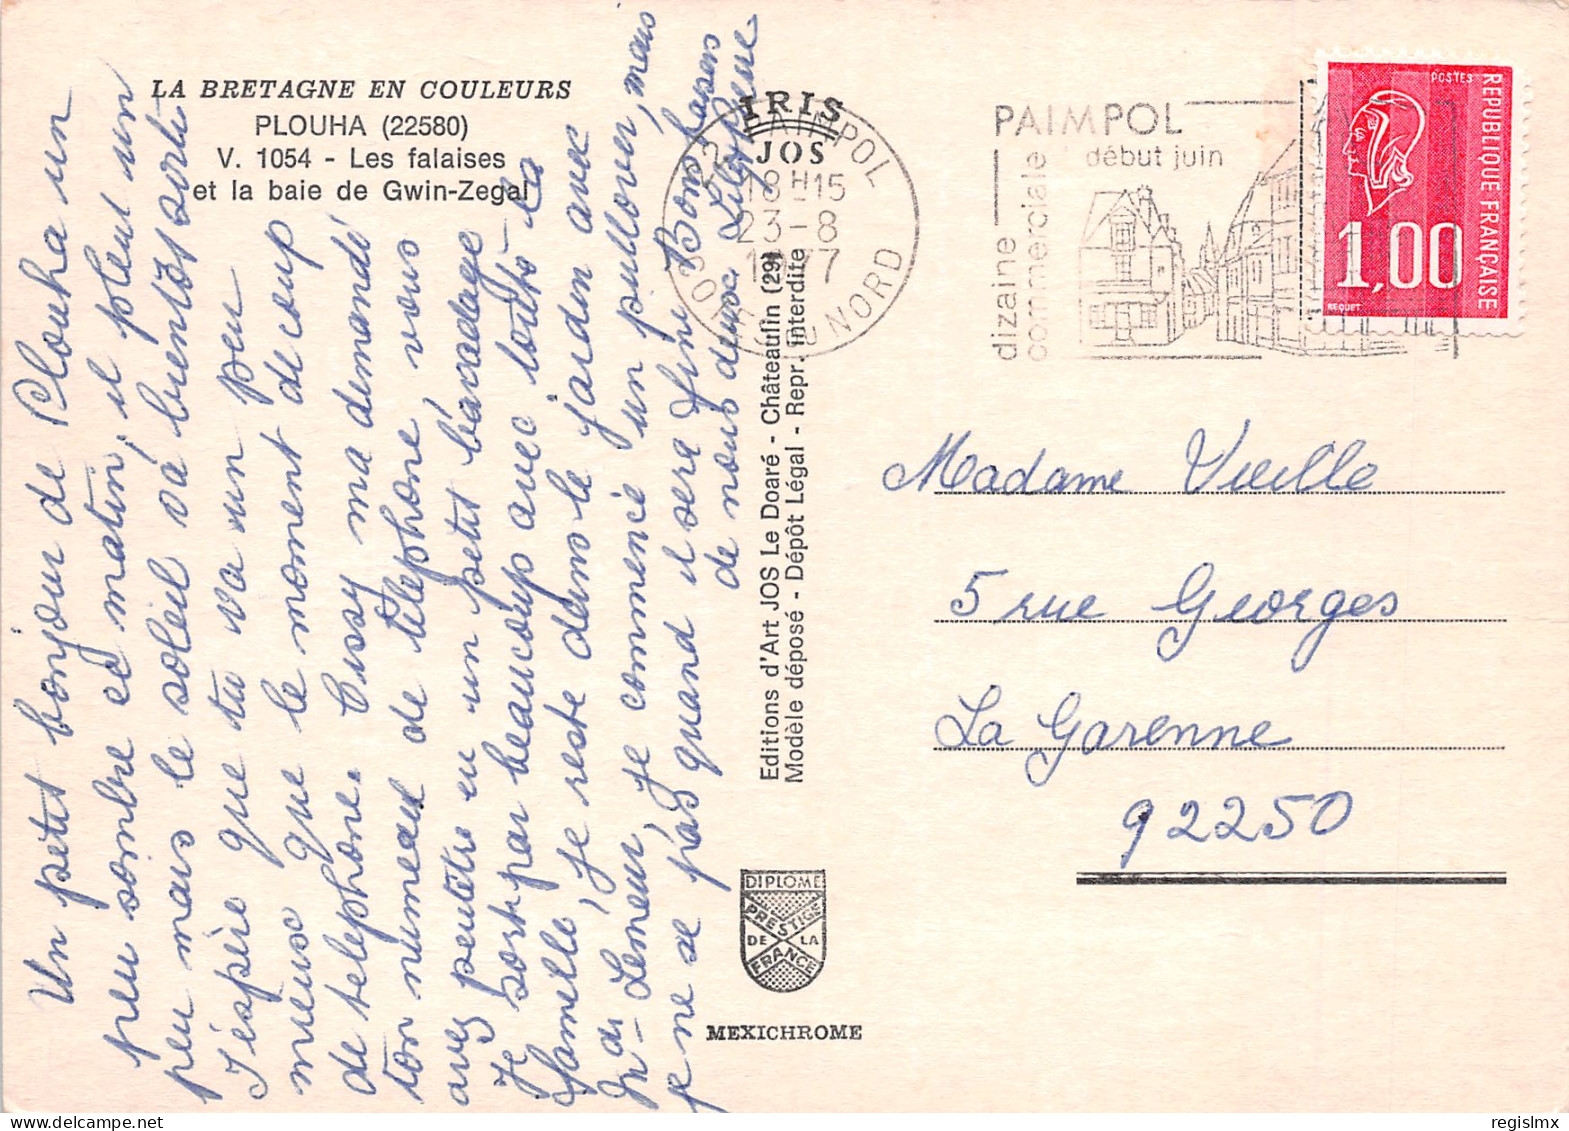 LA BRETAGNE EN COULEURS
PLOUHA (22580)
V. 1054 - Les falaises
et la baie de Gwin-Zegal
Un petit bonjour de Plouha un
peu sombre ce matin, il pleut un
peu mais le soleil va bientôt sortir
J'espère que tu va un peu
mieux que le moment de coup
de telephone. Cissy ma demandé
ton numeau de téléphone, vous
avez peutêtre eu un petit bavardage
Je sort pas beaucoup avec toute la
famille, je reste dans le jardin avec
Mas Lemeur, je commence un pullover, mais
je ne se pas quand il sera fini Bons baisers
de nous deux
IRIS
JOS
22 PAIMPOL
18H15
23-8
1977
COTES DU NORD
PAIMPOL
début juin
dizaine
commerciale
POSTES
REPUBLIQUE FRANÇAISE
1,00
BEQUET
Editions d'Art JOS Le Doaré - Châteaulin (29)
Modèle déposé - Dépôt Légal - Repr. interdite
Madame Vieille
5 rue Georges
La Garenne
92250
DIPLOME
PRESTIGE
DE LA
FRANCE
MEXICHROME
regislmx